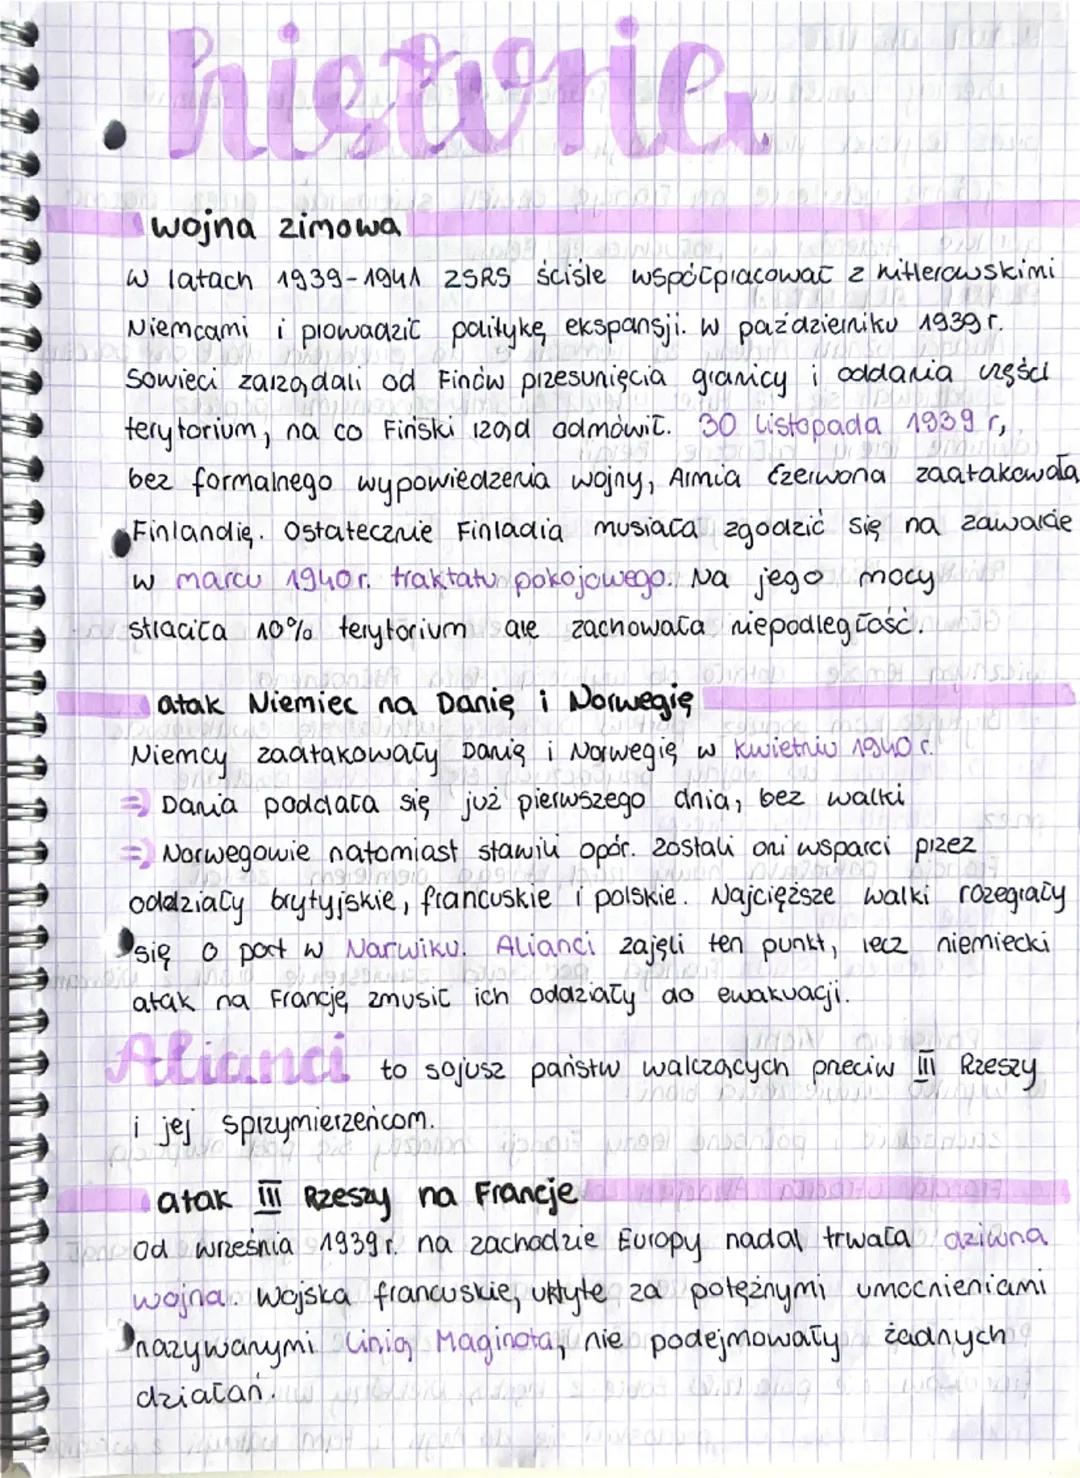 historia
wojna zimowa
W latach 1939-1941 ZSRS ściśle współpracował z hitlerowskimi
Niemcami i prowadził politykę ekspansji. W październiku 1939 r.
Sowieci zarządali od Finów przesunięcia granicy i oddania części
terytorium, na co Fiński rząd odmówił. 30 listopada 1939 r,
bez formalnego wypowiedzenia wojny, Armia Czerwona zaatakowała
Finlandię. Ostatecznie Finladia musiała zgodzić się na zawarcie
w marcu 1940r. traktatu pokojowego. Na jego mocy
straciła 10% terytorium ale zachowała niepodległość.
atak Niemiec na Danię i Norwegię
Niemcy zaatakowały Danię i Norwegię w kwietniu 1940 r.
⇒ Dania poddała się już pierwszego dnia, bez walki
⇒ Norwegowie natomiast stawili opór. Zostali oni wsparci przez
oddziały brytyjskie, francuskie i polskie. Najcięższe walki rozegrały
się o port w Narwiku. Alianci zajęli ten punkt, lecz niemiecki
atak na Francję zmusił ich oddziały do ewakuacji.
Alianci to sojusz państw walczących przeciw III Rzeszy
i jej sprzymierzeńcom.
atak III Rzeszy na Francje
Od września 1939r. na zachodzie Europy nadal trwała dziwna
wojna. Wojska francuskie, ukryte za potężnymi umocnieniami
nazywanymi Linią Maginota, nie podejmowały żadnych
działań.